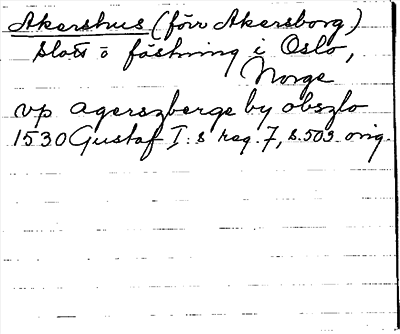 Akershus (förr Akersborg)
slott o fästning i Oslo,
Norge
vp agerszberge by obszlo
1530 Gustaf I:s reg. 7, s. 503 orig.